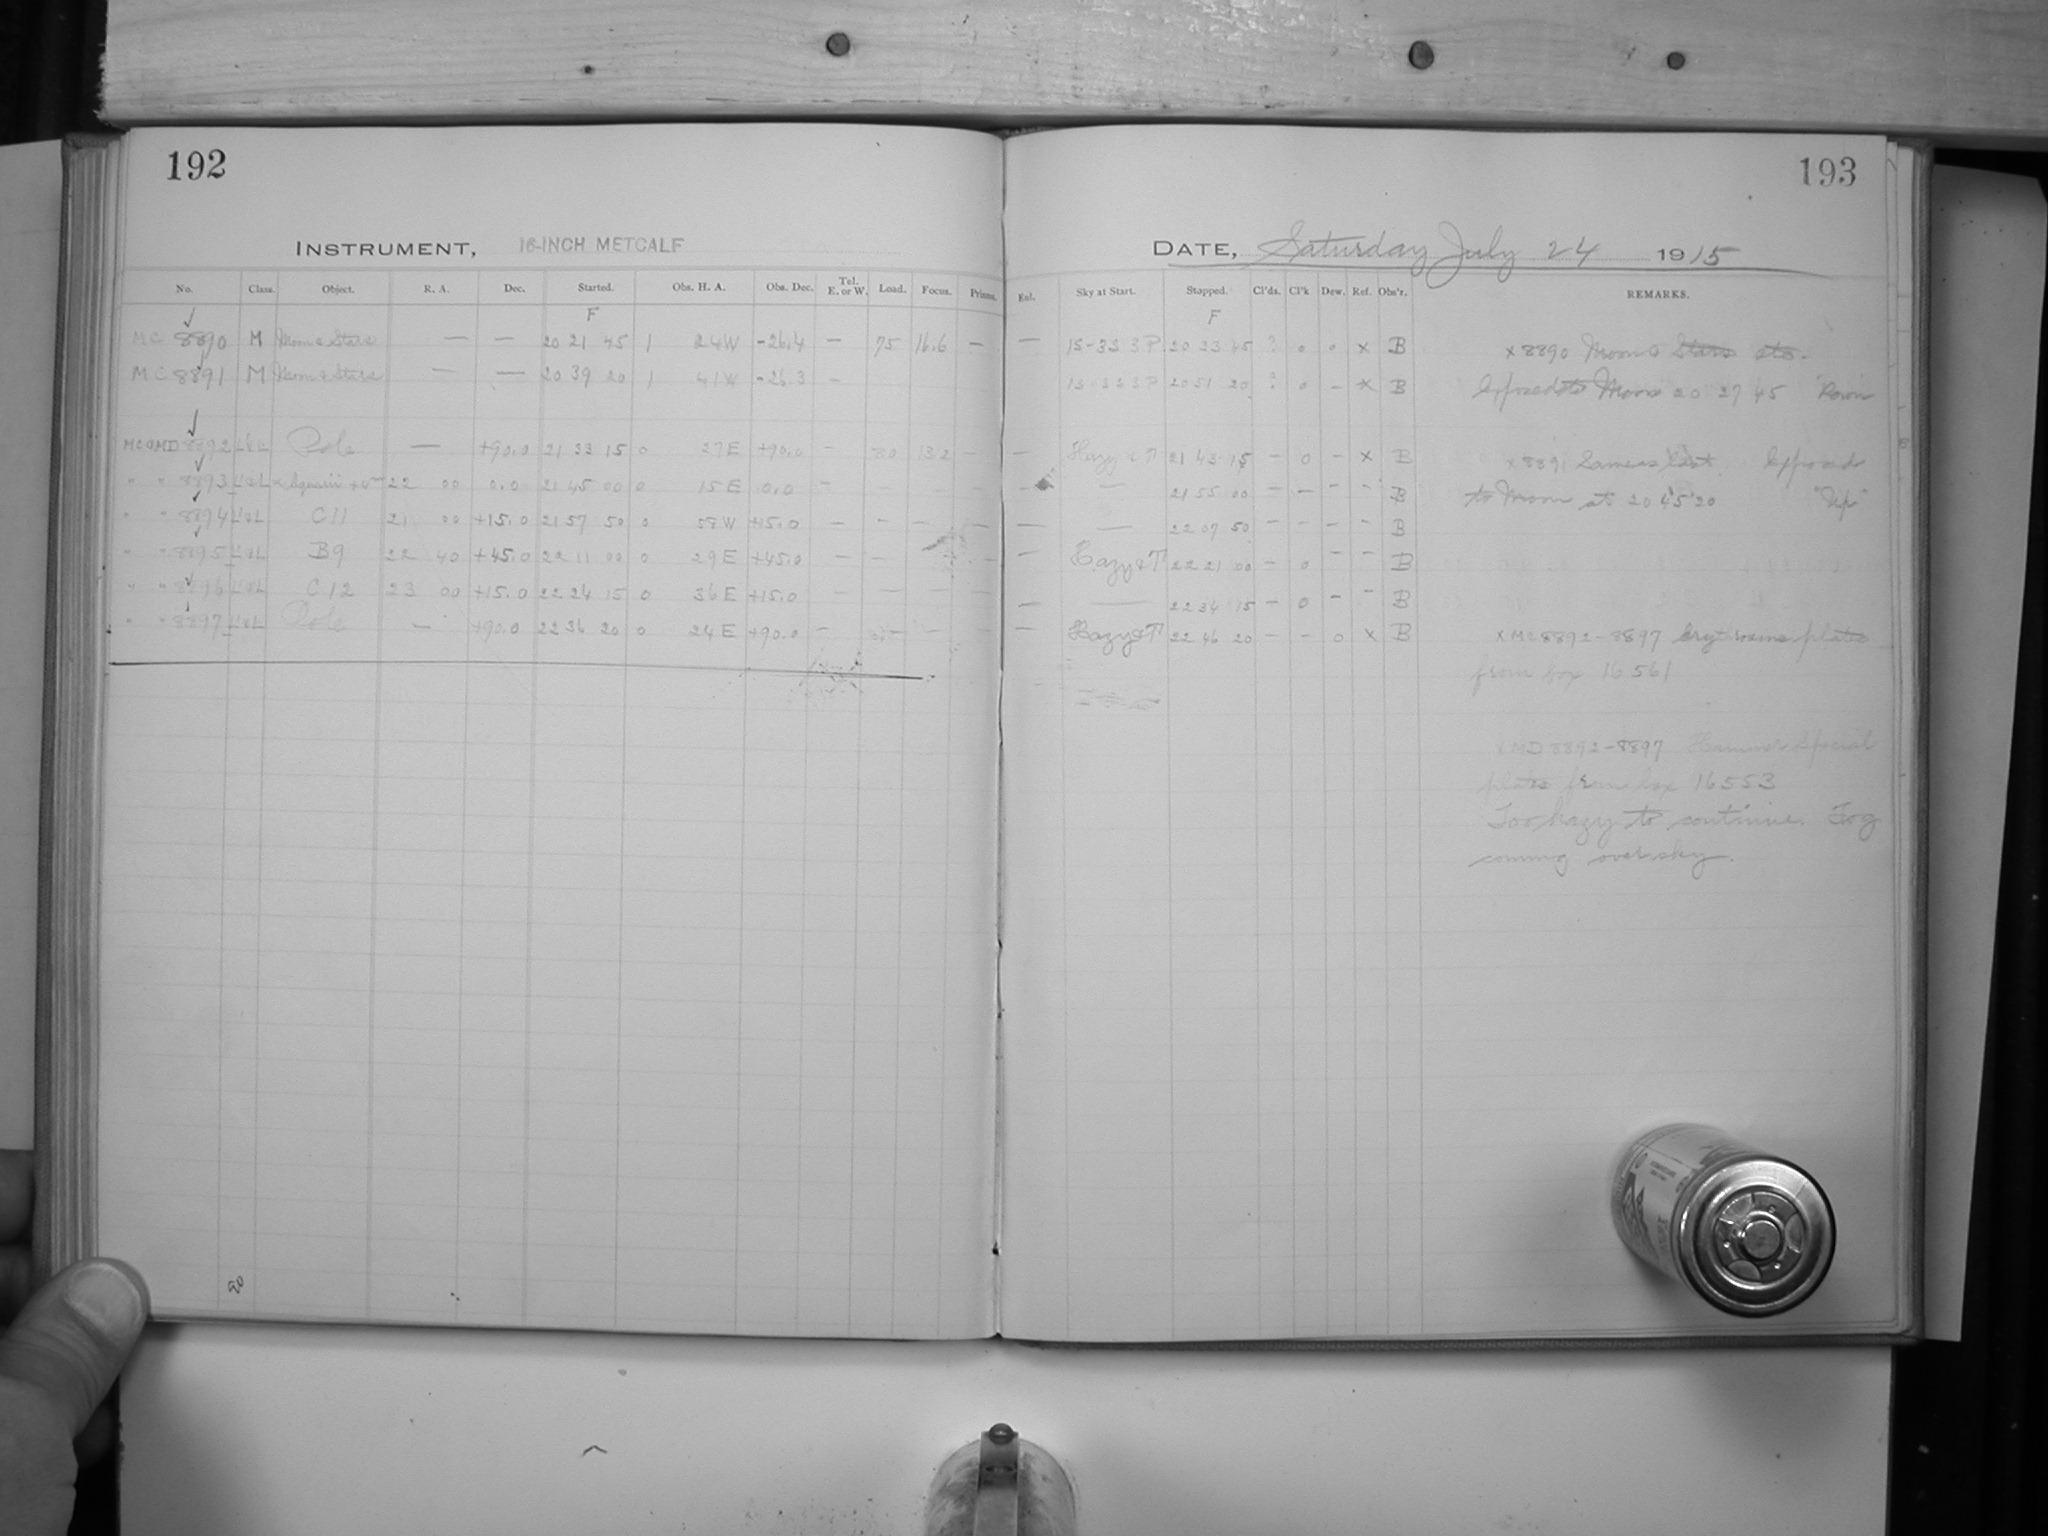 192
INSTRUMENT, 16-INCH METCALF
No. Class. Object. R. A. Dec. Started. Obs. H. A. Obs. Dec. Tel. E. or W. Load. Focus. Prisms.
F
MC 8890 M Moon & Stars — — 20 21 45 1 24 W -26.4 — 75 16.6 —
MC 8891 M Moon & Stars — — 20 39 20 1 41 W -26.3 —
MC & MD 8892 L&L Pole — +90.0 21 33 15 0 27 E +90.0 - 80 13.2 -
" " 8893 L&L 22 00 0.0 21 45 00 0 15 E 0.0 — - - -
" " 8894 L&L C11 21 00 +15.0 21 57 50 0 58 W +15.0 — - - -
" " 8895 L&L B9 22 40 +45.0 22 11 00 0 29 E +45.0 — -
" " 8896 L&L C12 23 00 +15.0 22 24 15 0 36 E +15.0 — - - -
" " 8897 L&L Pole — +90.0 22 36 20 0 24 E +90.0 — - - -
20
193
DATE, Saturday July 24 1915
Enl. Sky at Start. Stopped. Cl'ds. Cl'k Dew. Ref. Obs'r. REMARKS.
F
— 15-33 3P 20 33 45 ? 0 0 x B
15-33 3P 20 51 20 ? 0 - x B
— Hazy & T 21 43 15 - 0 - x B
- — 21 55 00 - - - - B
— — 22 07 50 - - - - B
— Hazy & T 22 21 00 - 0 - - B
— — 22 34 15 - 0 - - B
— Hazy & T 22 46 20 - - 0 x B
x 8890 Moon & Stars
Exposed to Moon 20 27 45 "Down"
x 8891 Same as last. Exposed
to Moon at 20 45 20 "Up"
x MC 8892-8897 plates
from box 16561
x MD 8892-8897 Hammer Special
plates from box 16553
Too hazy to continue. Fog
coming over sky.